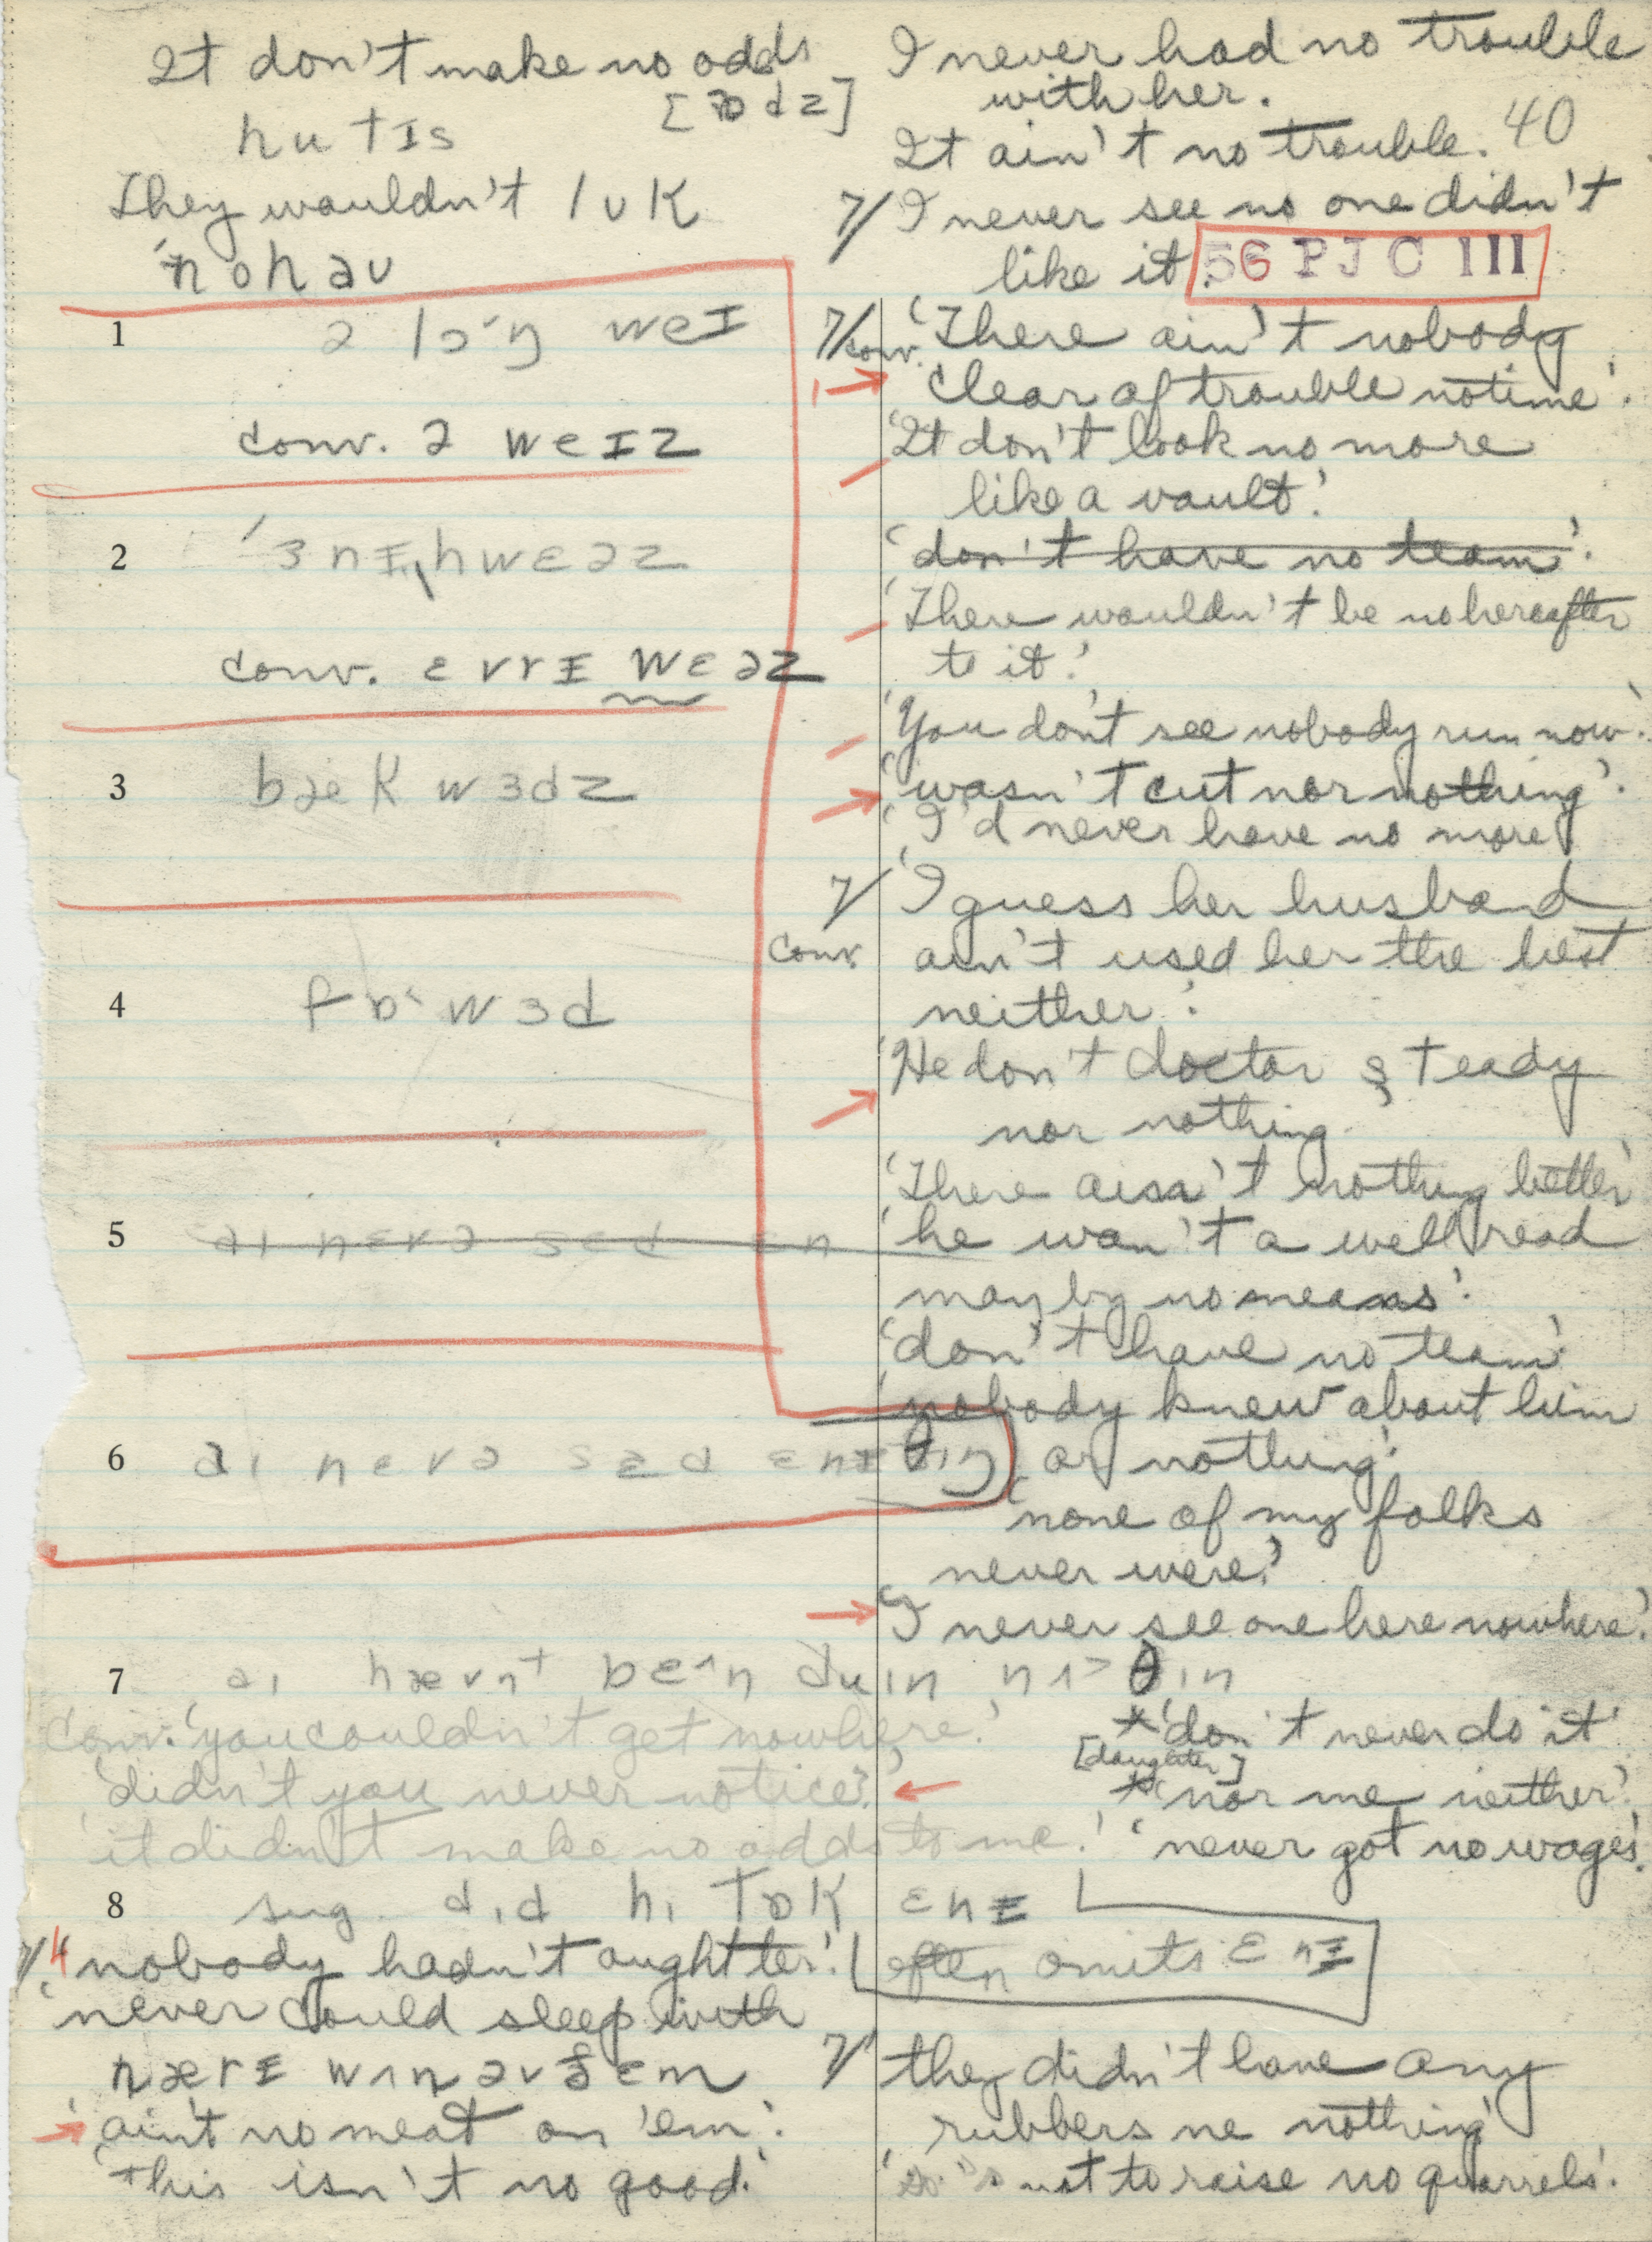 It don't make no odds
[ɒdz]
hu tɪs
They wouldn't lʊk
'nohaʊ
1 ə lɔˑŋ weɪ
conv. ə weɪz
2 'ɛnɪ,hwɛəz
conv. ɛvrɪ wɛəz
3 bækwɜdz
4 fɒˑwɜd
5 aɪ nɛvə sɛd ɛn
6 aɪ nɛvə sɛd ɛnɪθɪŋ
7 aɪ hævnt bɛ^n duɪn nʌ>θɪn
conv. 'you couldn't get nowhere.'
'didn't you never notice?'
'it didn't make no odds to me.'
8 sug. dɪd hɪ tɒk ɛnɪ
often omits ɛnɪ
7/ 4 'nobody hadn't ought ter'.
'never could sleep with
nærɪ wʌn əv ðɛm
'ain't no meat on 'em'.
'this isn't no good.'
I never had no trouble
with her.
It ain't no trouble. 40
7/ I never see no one didn't
like it.
56 PJC III
7/ conv. 'There ain't nobody
clear of trouble no time'.
'It don't look no more
like a vault'.
'don't have no team'.
'There wouldn't be no hereafter
to it.'
'You don't see nobody run now'.
'wasn't cut nor nothing'.
'I'd never have no more'
7/ conv. 'I guess her husband
ain't used her the best
neither'.
'He don't doctor steady
nor nothing
'There ain't nothing better'
'he wan't a well read
man by no means'.
'don't have no team'.
'nobody knew about him
or nothing'.
'none of my folks
never were.'
'I never see one here nowhere.'
*'don't never do it'
[daughter]
*'nor me neither'.
'never got no wages'.
7/ they didn't have any
rubbers ne nothing'
not to raise no quarrels'.